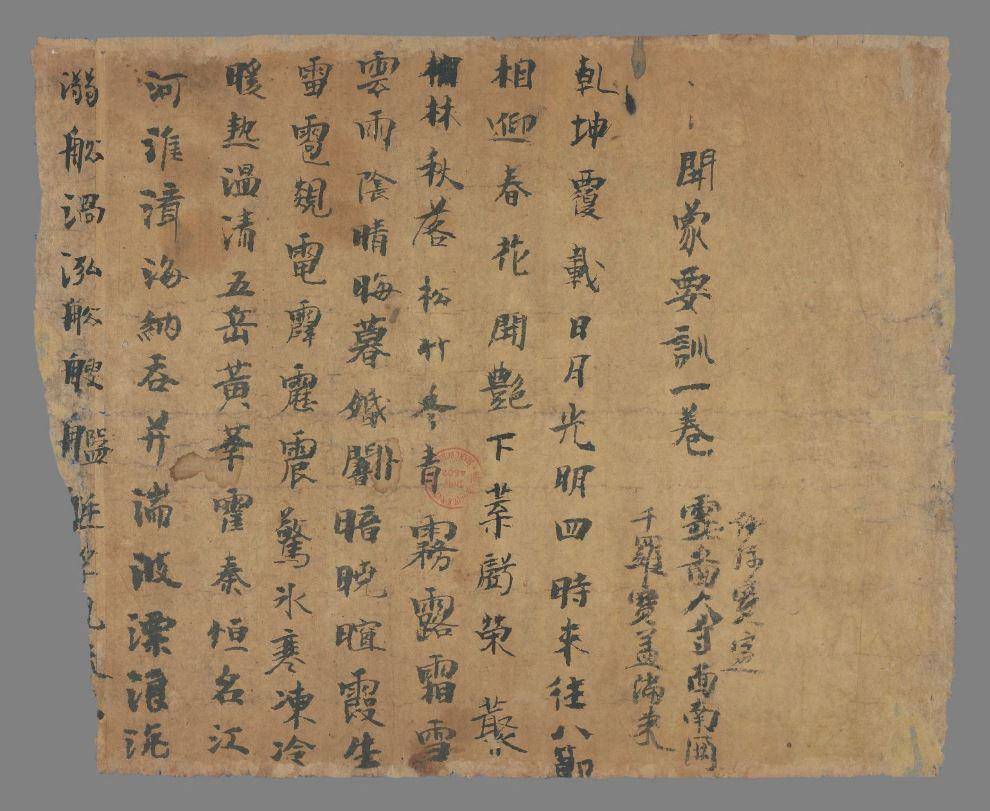 開蒙要訓一卷
千羅寶蓋滿
乾坤覆載日月光明四時來往八節
相迎春花開艷下葉榮藂
林秋落松竹冬青霧露霜雪
雲雨陰晴晦暮暗曉暄霞生
雷雹電霹靂震驚氷寒凍冷
暖熱溫清五岳黃華霍秦恒名江
河淮海納吞并湍波漂浪
溺舩渦泓舩艘艦